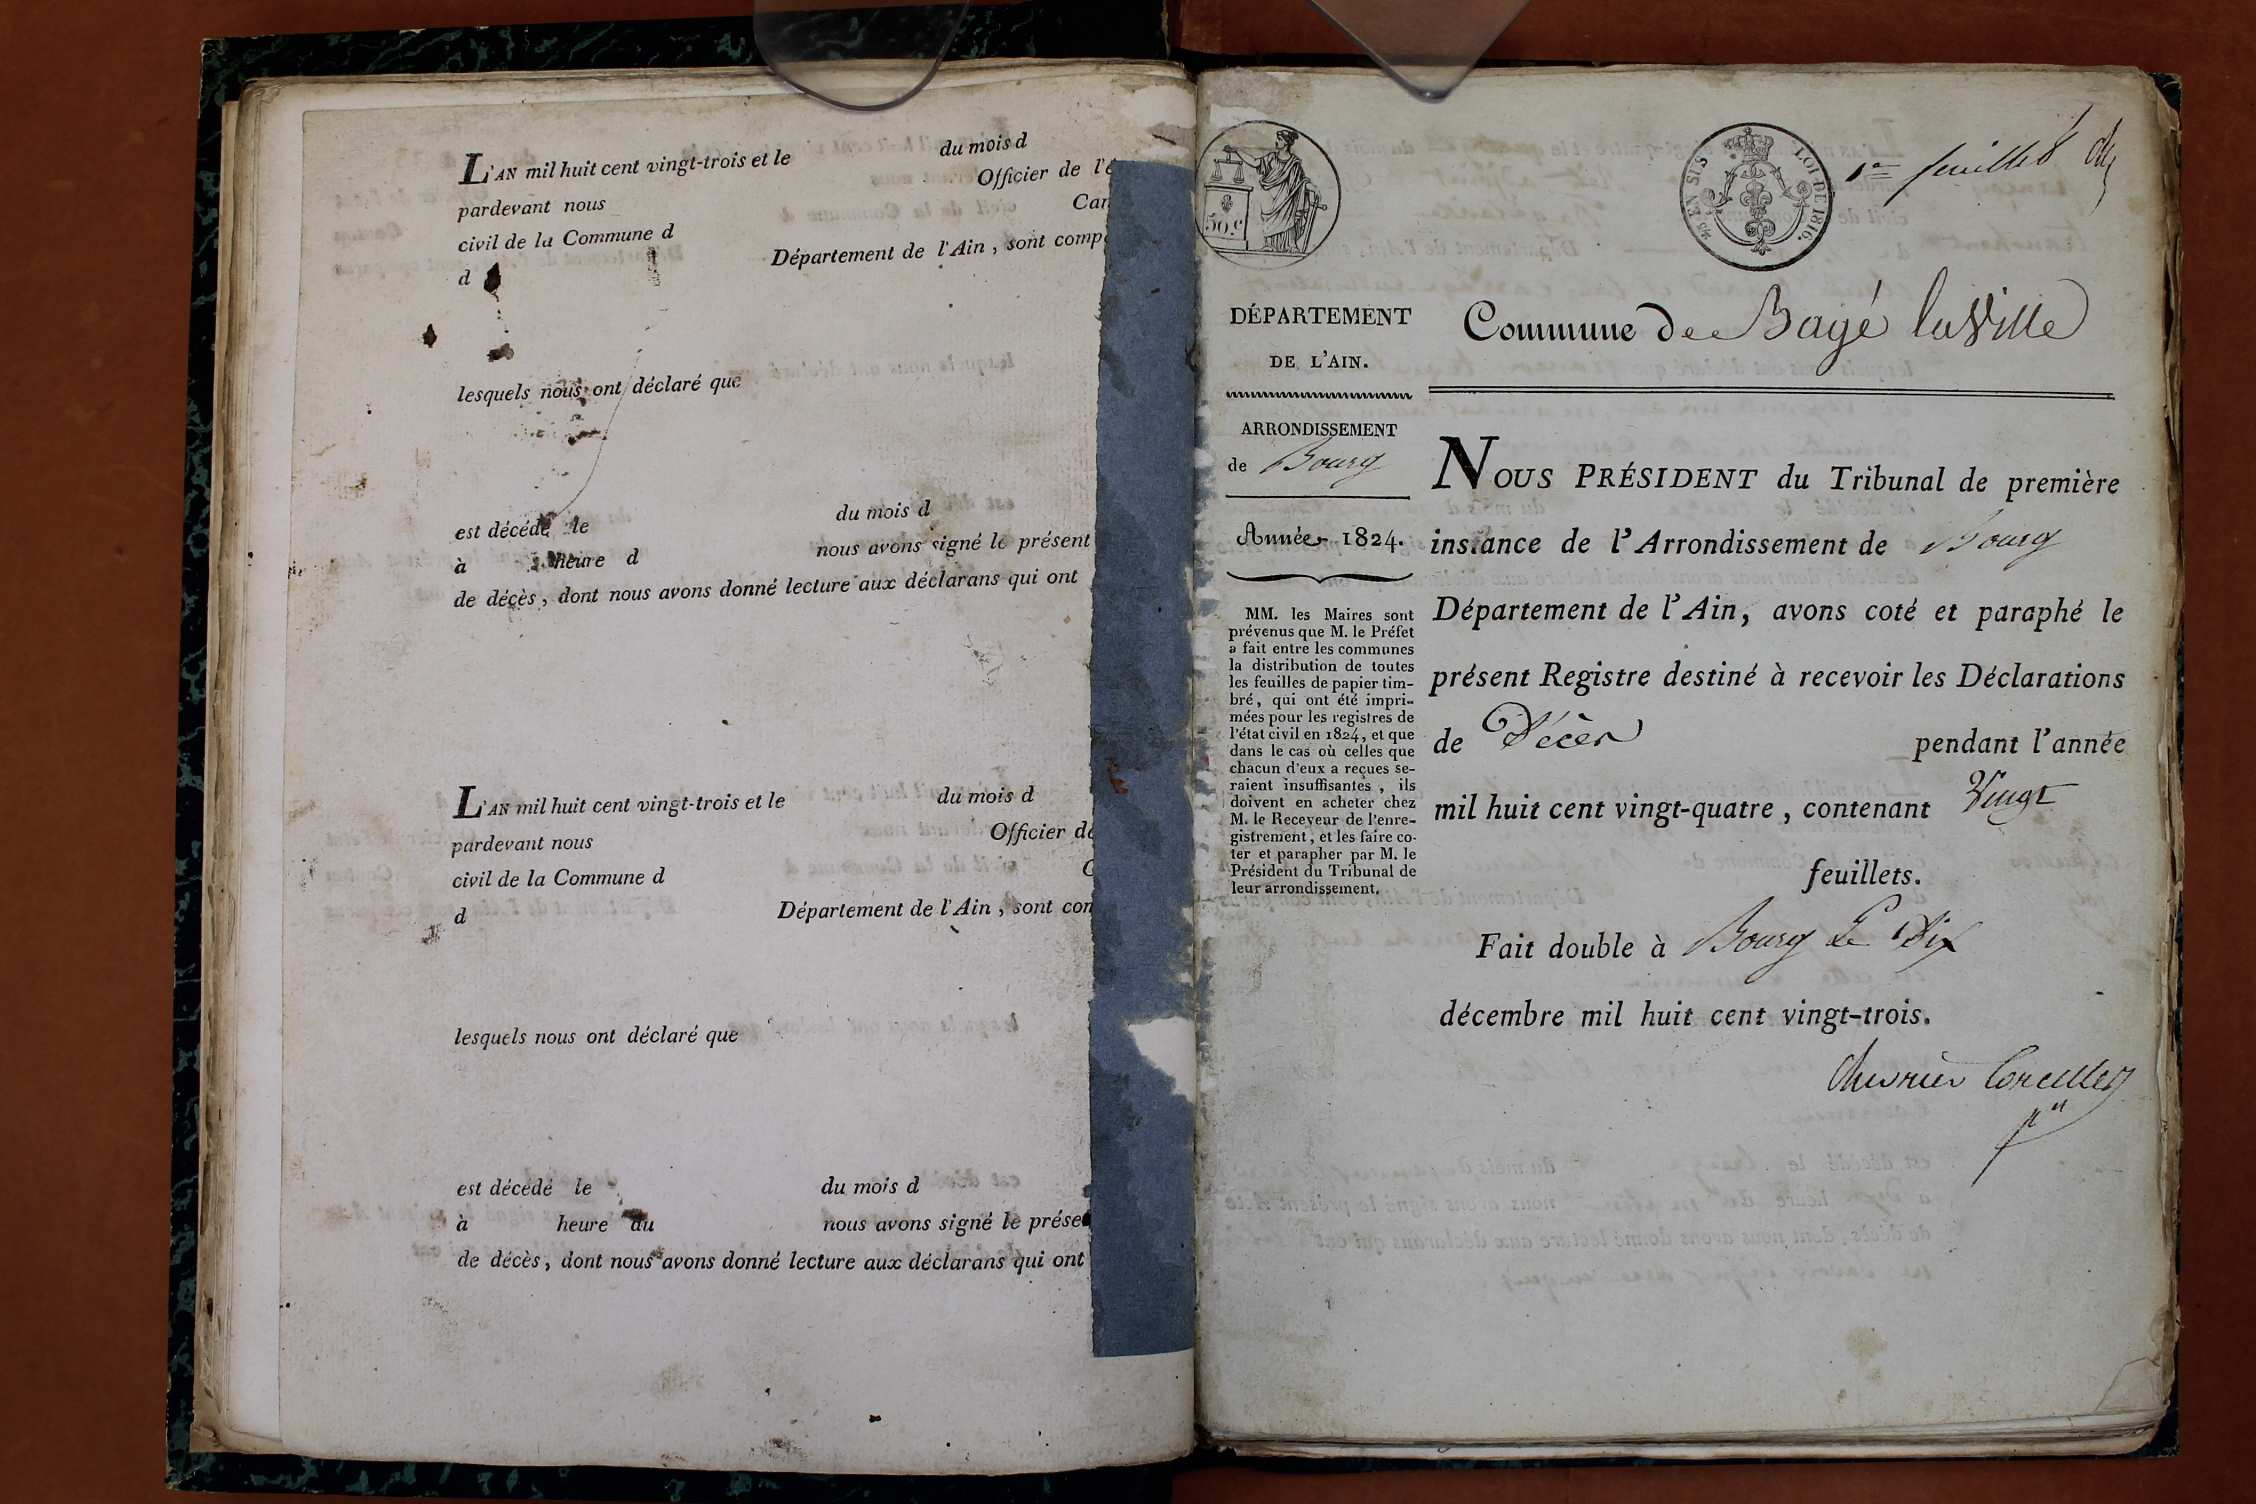 L'AN mil huit cent vingt-trois et le du mois d
pardevant nous Officier de l'é
civil de la Commune d Can
d Département de l'Ain, sont comp
lesquels nous ont déclaré que
est décédé le du mois d
à heure d nous avons signé le présent
de décès, dont nous avons donné lecture aux déclarans qui ont
L'AN mil huit cent vingt-trois et le du mois d
pardevant nous Officier de
civil de la Commune d C
d Département de l'Ain, sont com
lesquels nous ont déclaré que
est décédé le du mois d
à heure du nous avons signé le prése
de décès, dont nous avons donné lecture aux déclarans qui ont
50.c
EN SUS
LOI DE 1816.
1er feuillet
DÉPARTEMENT
DE L'AIN.
ARRONDISSEMENT
de Bourg
Année 1824.
MM. les Maires sont
prévenus que M. le Préfet
a fait entre les communes
la distribution de toutes
les feuilles de papier tim-
bré, qui ont été impri-
mées pour les registres de
l'état civil en 1824, et que
dans le cas où celles que
chacun d'eux a reçues se-
raient insuffisantes, ils
doivent en acheter chez
M. le Receveur de l'enre-
gistrement, et les faire co-
ter et parapher par M. le
Président du Tribunal de
leur arrondissement.
Commune de Bagé la Ville
NOUS PRÉSIDENT du Tribunal de première
instance de l'Arrondissement de Bourg
Département de l'Ain, avons coté et paraphé le
présent Registre destiné à recevoir les Déclarations
de Décès pendant l'année
mil huit cent vingt-quatre, contenant Vingt
feuillets.
Fait double à Bourg Le Dix
décembre mil huit cent vingt-trois.